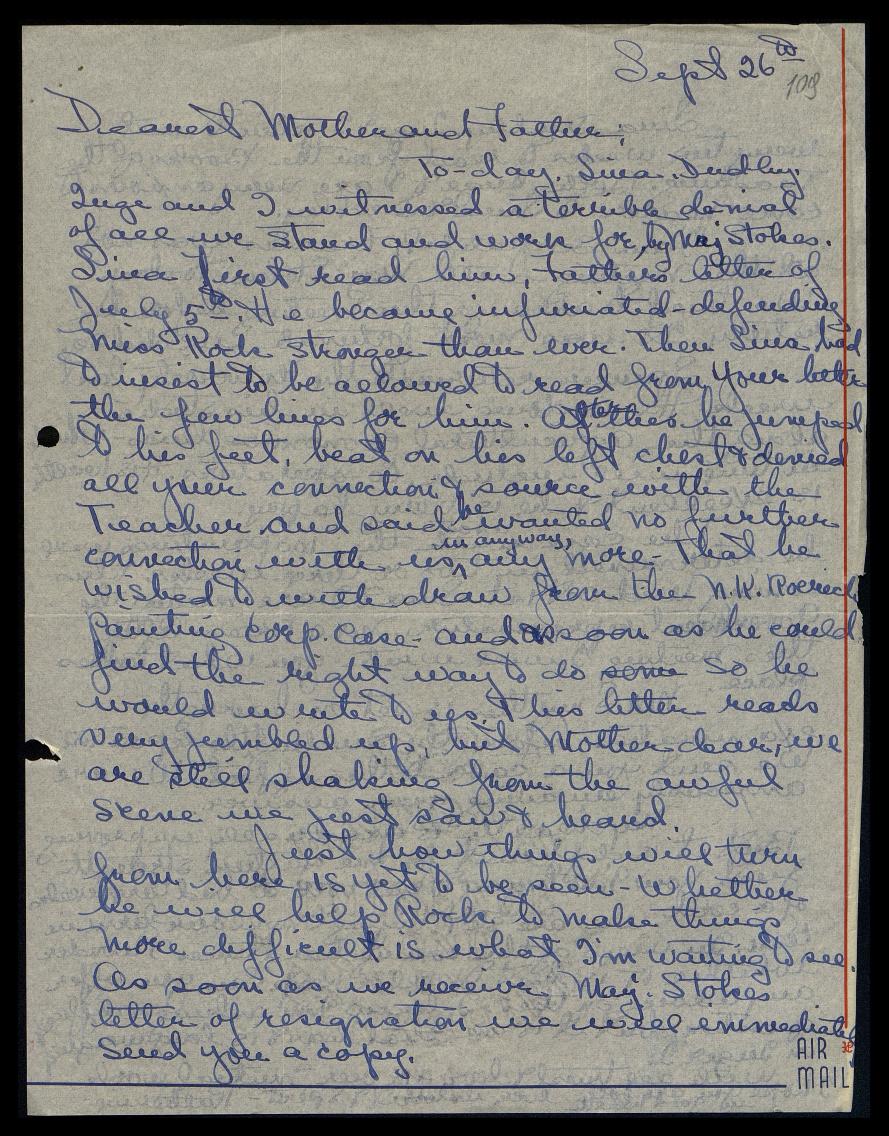 Sept 26th
109
Dearest Mother and Father;
To-day. Sina. Dudley.
Inge and I witnessed a terrible denial
of all we stand and work for, by Maj Stokes.
Sina first read him, Fathers letter of
July 5th. He became infuriated - defending
Miss Rock stronger than ever. Then Sina had
to insist to be allowed to read from Your letter
the few lines for him. After this he jumped
to his feet, beat on his left chest & denied
all your connection & source with the
Teacher and said he wanted no further
connection with us, in anyway, any more - That he
wished to with draw from the N.K. Roerich
Painting Corp. Case - and as soon as he could
find the right way to do some so he
would write to us. This letter reads
very jumbled up, but Mother dear, we
are still shaking from the awful
scene we just saw & heard.
Just how things will turn
from here is yet to be seen - Whether
he will help Rock to make things
more difficult is what I'm waiting to see.
As soon as we receive Maj. Stokes
letter of resignation we will immediately
send you a copy.
AIR
MAIL